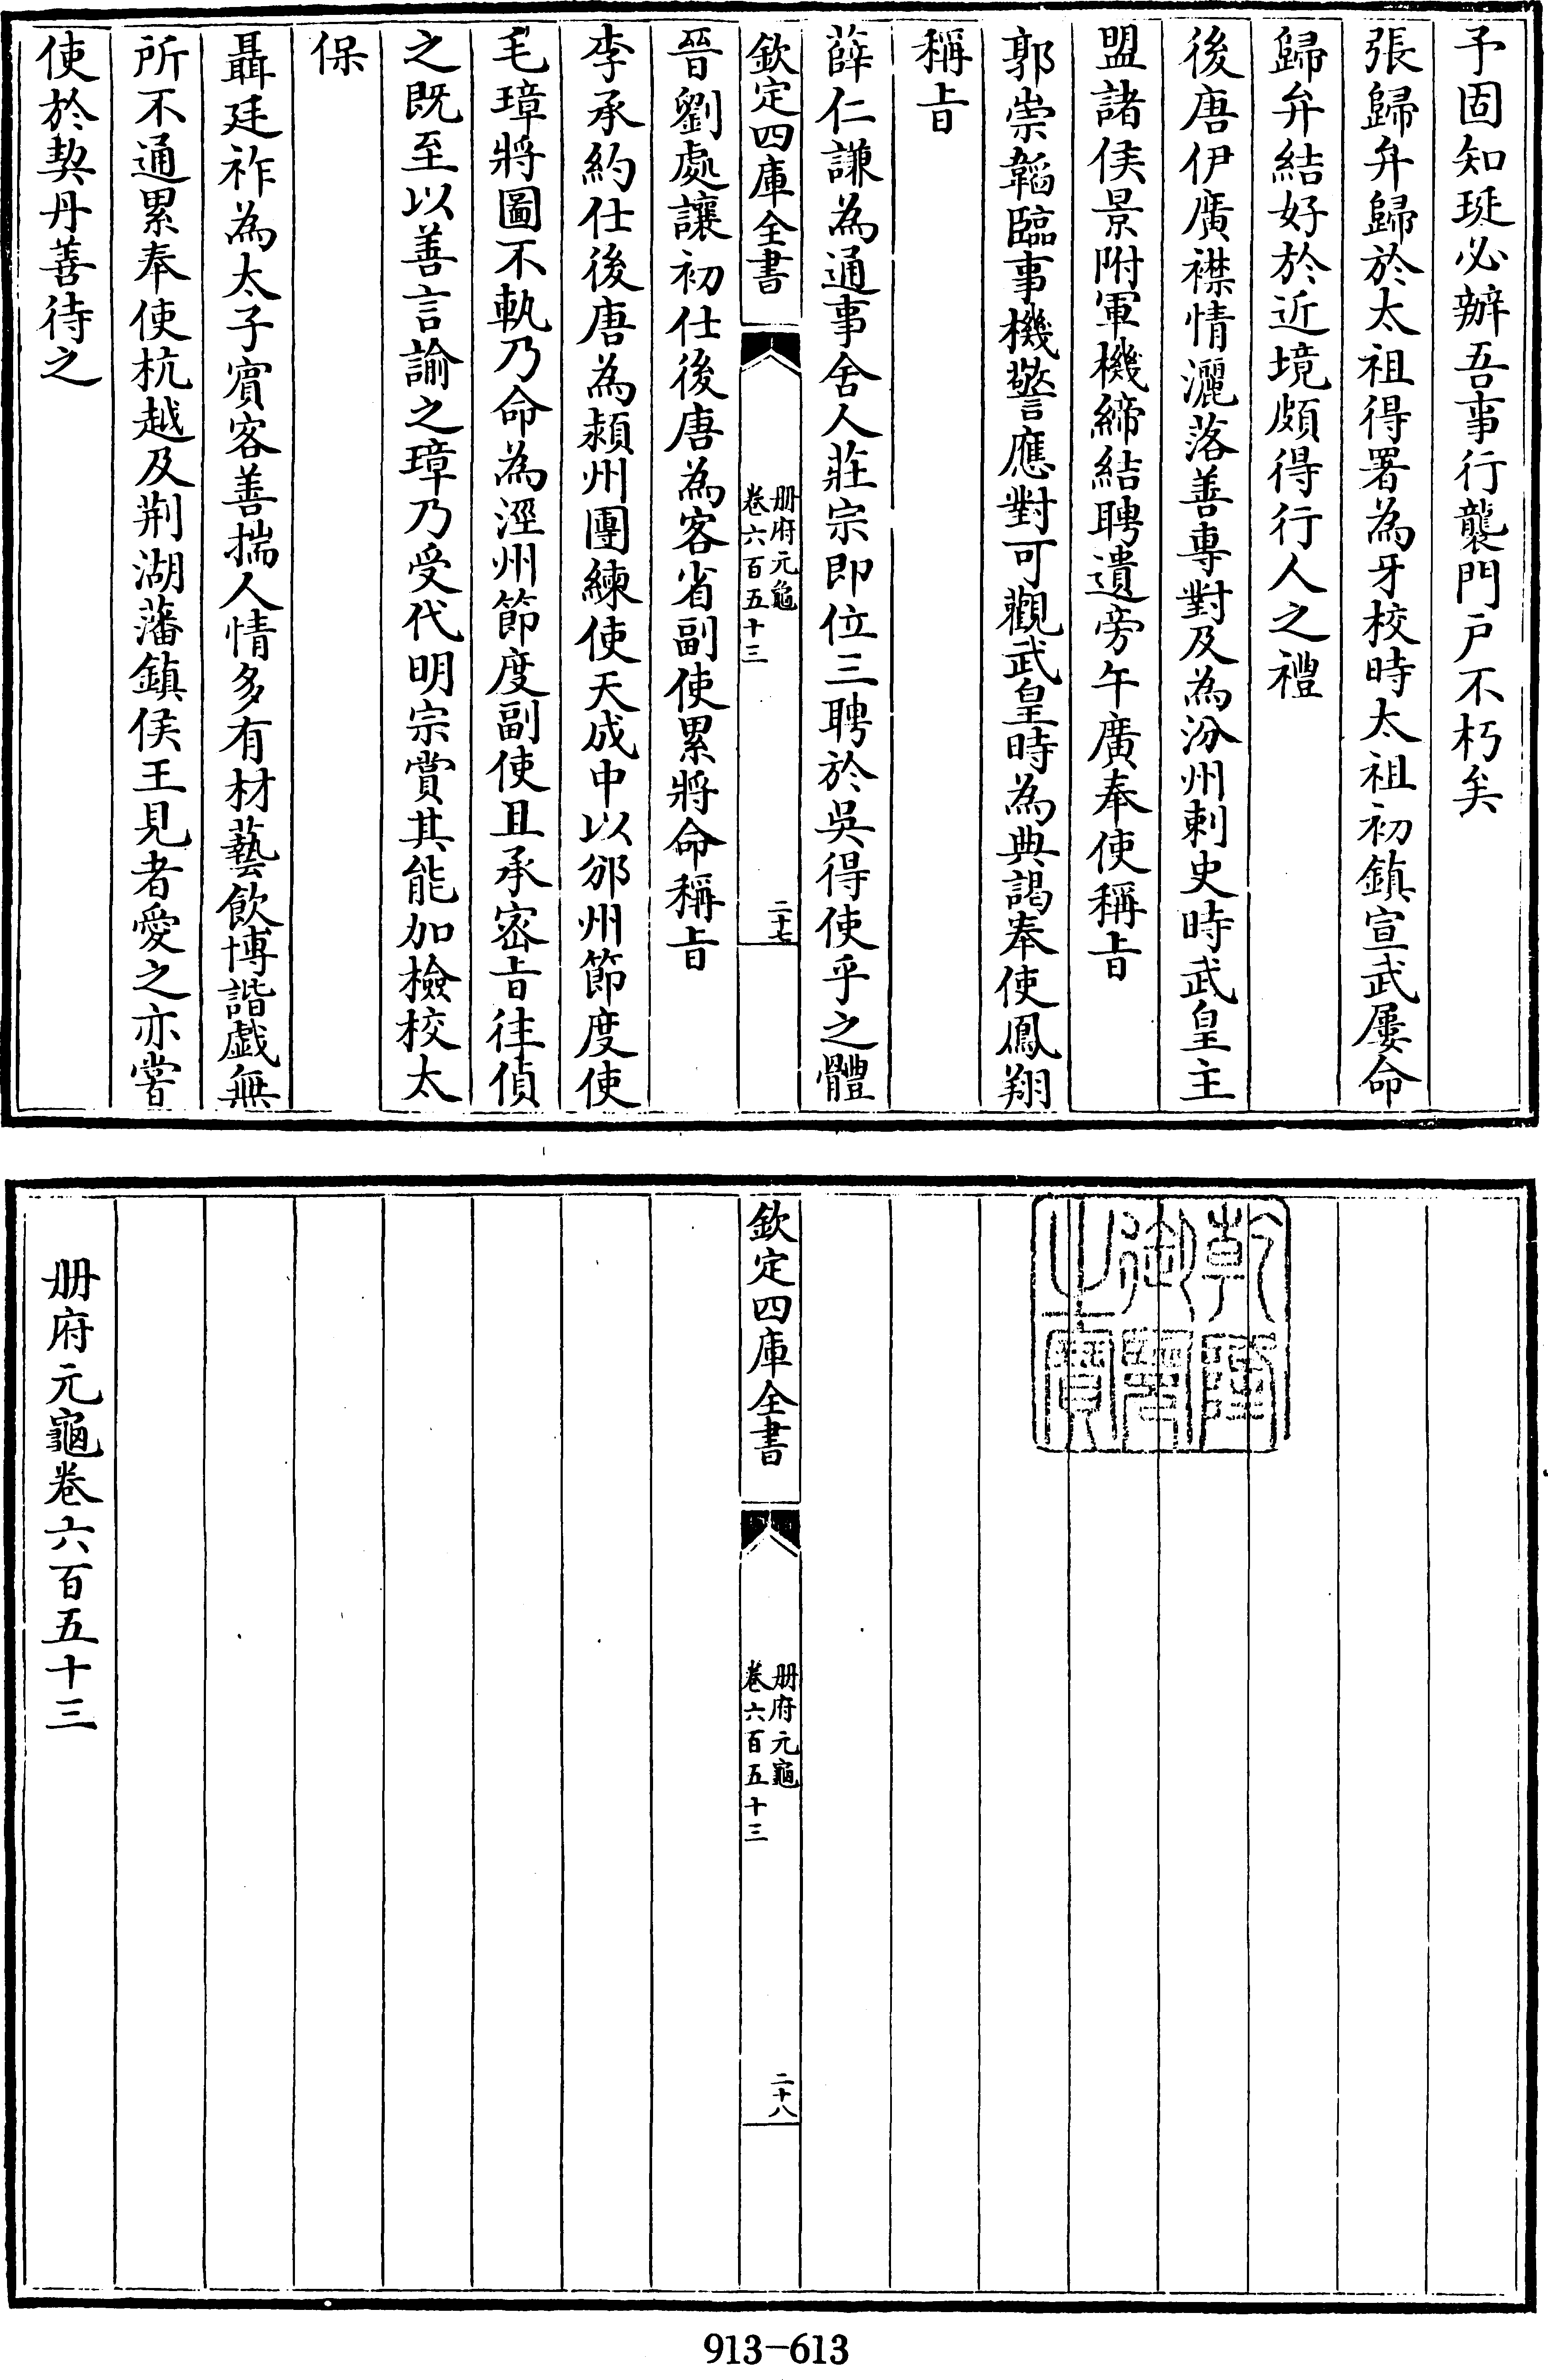 予固知珽必辦吾事行襲門戶不朽矣
張歸弁歸於太祖得署為牙校時太祖初鎮宣武屢命
歸弁結好於近境頗得行人之禮
後唐伊廣襟情灑落善專對及為汾州刺史時武皇主
盟諸侯景附軍機締結聘遺旁午廣奉使稱旨
郭崇韜臨事機警應對可觀武皇時為典謁奉使鳳翔
稱旨
薛仁謙為通事舍人莊宗即位三聘於吳得使乎之體
欽定四庫全書
冊府元龜
卷六百五十三
二十七
晉劉處讓初仕後唐為客省副使累將命稱旨
李承約仕後唐為潁州團練使天成中以邠州節度使
毛璋將圖不軌乃命為涇州節度副使且承密旨往偵
之既至以善言諭之璋乃受代明宗賞其能加檢校太
保
聶延祚為太子賓客善揣人情多有材藝飲博諧戲無
所不通累奉使杭越及荆湖藩鎮侯王見者愛之亦嘗
使於契丹善待之
乾隆
御覽
之寶
欽定四庫全書
冊府元龜
卷六百五十三
二十八
冊府元龜卷六百五十三
913-613